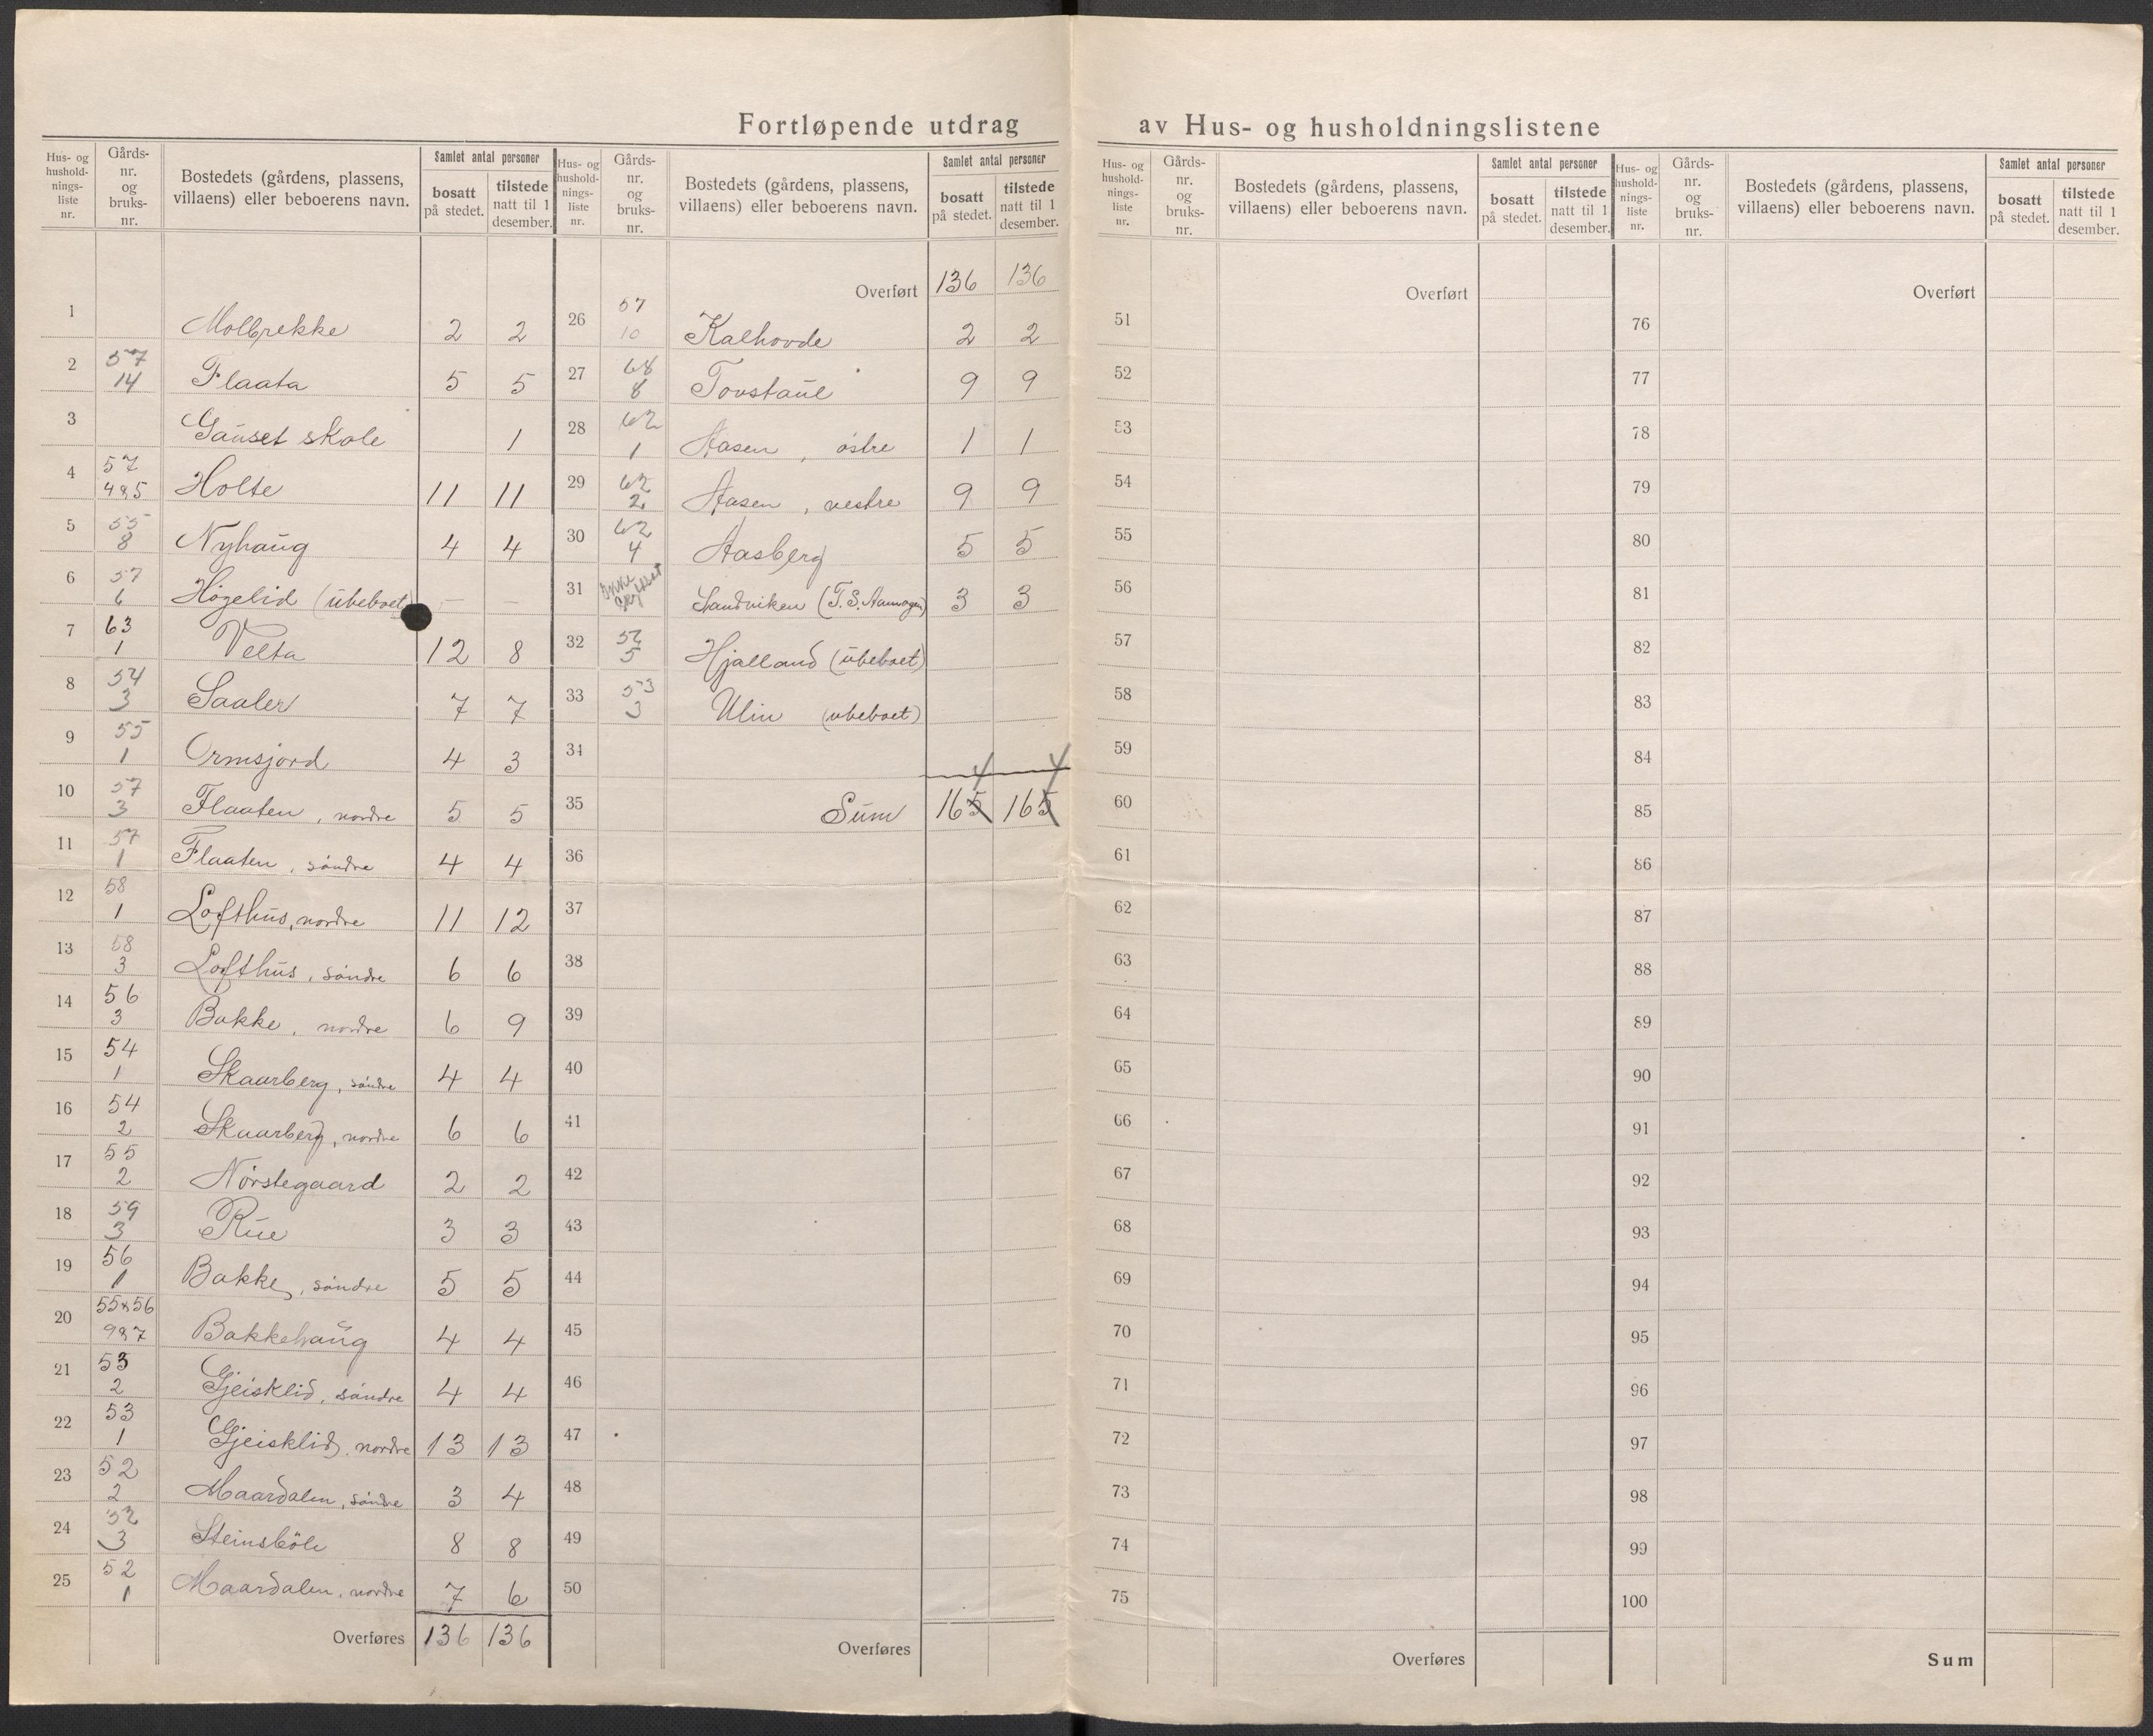 Fortløpende utdrag av Hus- og husholdningslistene
Hus- og hushold-nings-liste nr. | Gårds-nr. og bruks-nr. | Bostedets (gårdens, plassens, villaens) eller beboerens navn. | Samlet antal personer | bosatt på stedet. | tilstede natt til 1 desember.
1 Molbrekke 2 2
2 57 14 Flaata 5 5
3 Gauset skole 1
4 57 4&5 Holte 11 11
5 55 8 Nyhaug 4 4
6 57 6 Høgelid (ubeboet) — —
7 63 1 Velta 12 8
8 54 3 Saaler 7 7
9 55 1 Ormsjord 4 3
10 57 3 Flaaten, nordre 5 5
11 57 1 Flaaten, søndre 4 4
12 58 1 Lofthus, nordre 11 12
13 58 3 Lofthus, søndre 6 6
14 56 3 Bakke, nordre 6 9
15 54 1 Skaarberg, søndre 4 4
16 54 2 Skaarberg, nordre 6 6
17 55 2 Nørstegaard 2 2
18 59 3 Rue 3 3
19 56 1 Bakke, søndre 5 5
20 55&56 9&7 Bakkehaug 4 4
21 53 2 Gjeisklid, søndre 4 4
22 53 1 Gjeisklid, nordre 13 13
23 52 2 Maardalen, søndre 3 4
24 52 3 Steinsbøle 8 8
25 52 1 Maardalen, nordre 7 6
Overføres 136 136
Hus- og hushold-nings-liste nr. | Gårds-nr. og bruks-nr. | Bostedets (gårdens, plassens, villaens) eller beboerens navn. | Samlet antal personer | bosatt på stedet. | tilstede natt til 1 desember.
Overført 136 136
26 57 10 Kalhovde 2 2
27 68 8 Tovstaul 9 9
28 62 1 Aasen, østre 1 1
29 62 2 Aasen, vestre 9 9
30 62 4 Aasberg 5 5
31 Ikke Sandviken (T. S.) 3 3
32 52 5 Hjalland (ubeboet)
33 53 3 Ulin (ubeboet)
34
4 4
35 Sum 165 165
36
37
38
39
40
41
42
43
44
45
46
47
48
49
50
Overføres
Hus- og hushold-nings-liste nr. | Gårds-nr. og bruks-nr. | Bostedets (gårdens, plassens, villaens) eller beboerens navn. | Samlet antal personer | bosatt på stedet. | tilstede natt til 1 desember.
Overført
51
52
53
54
55
56
57
58
59
60
61
62
63
64
65
66
67
68
69
70
71
72
73
74
75
Overføres
Hus- og hushold-nings-liste nr. | Gårds-nr. og bruks-nr. | Bostedets (gårdens, plassens, villaens) eller beboerens navn. | Samlet antal personer | bosatt på stedet. | tilstede natt til 1 desember.
Overført
76
77
78
79
80
81
82
83
84
85
86
87
88
89
90
91
92
93
94
95
96
97
98
99
100
Sum